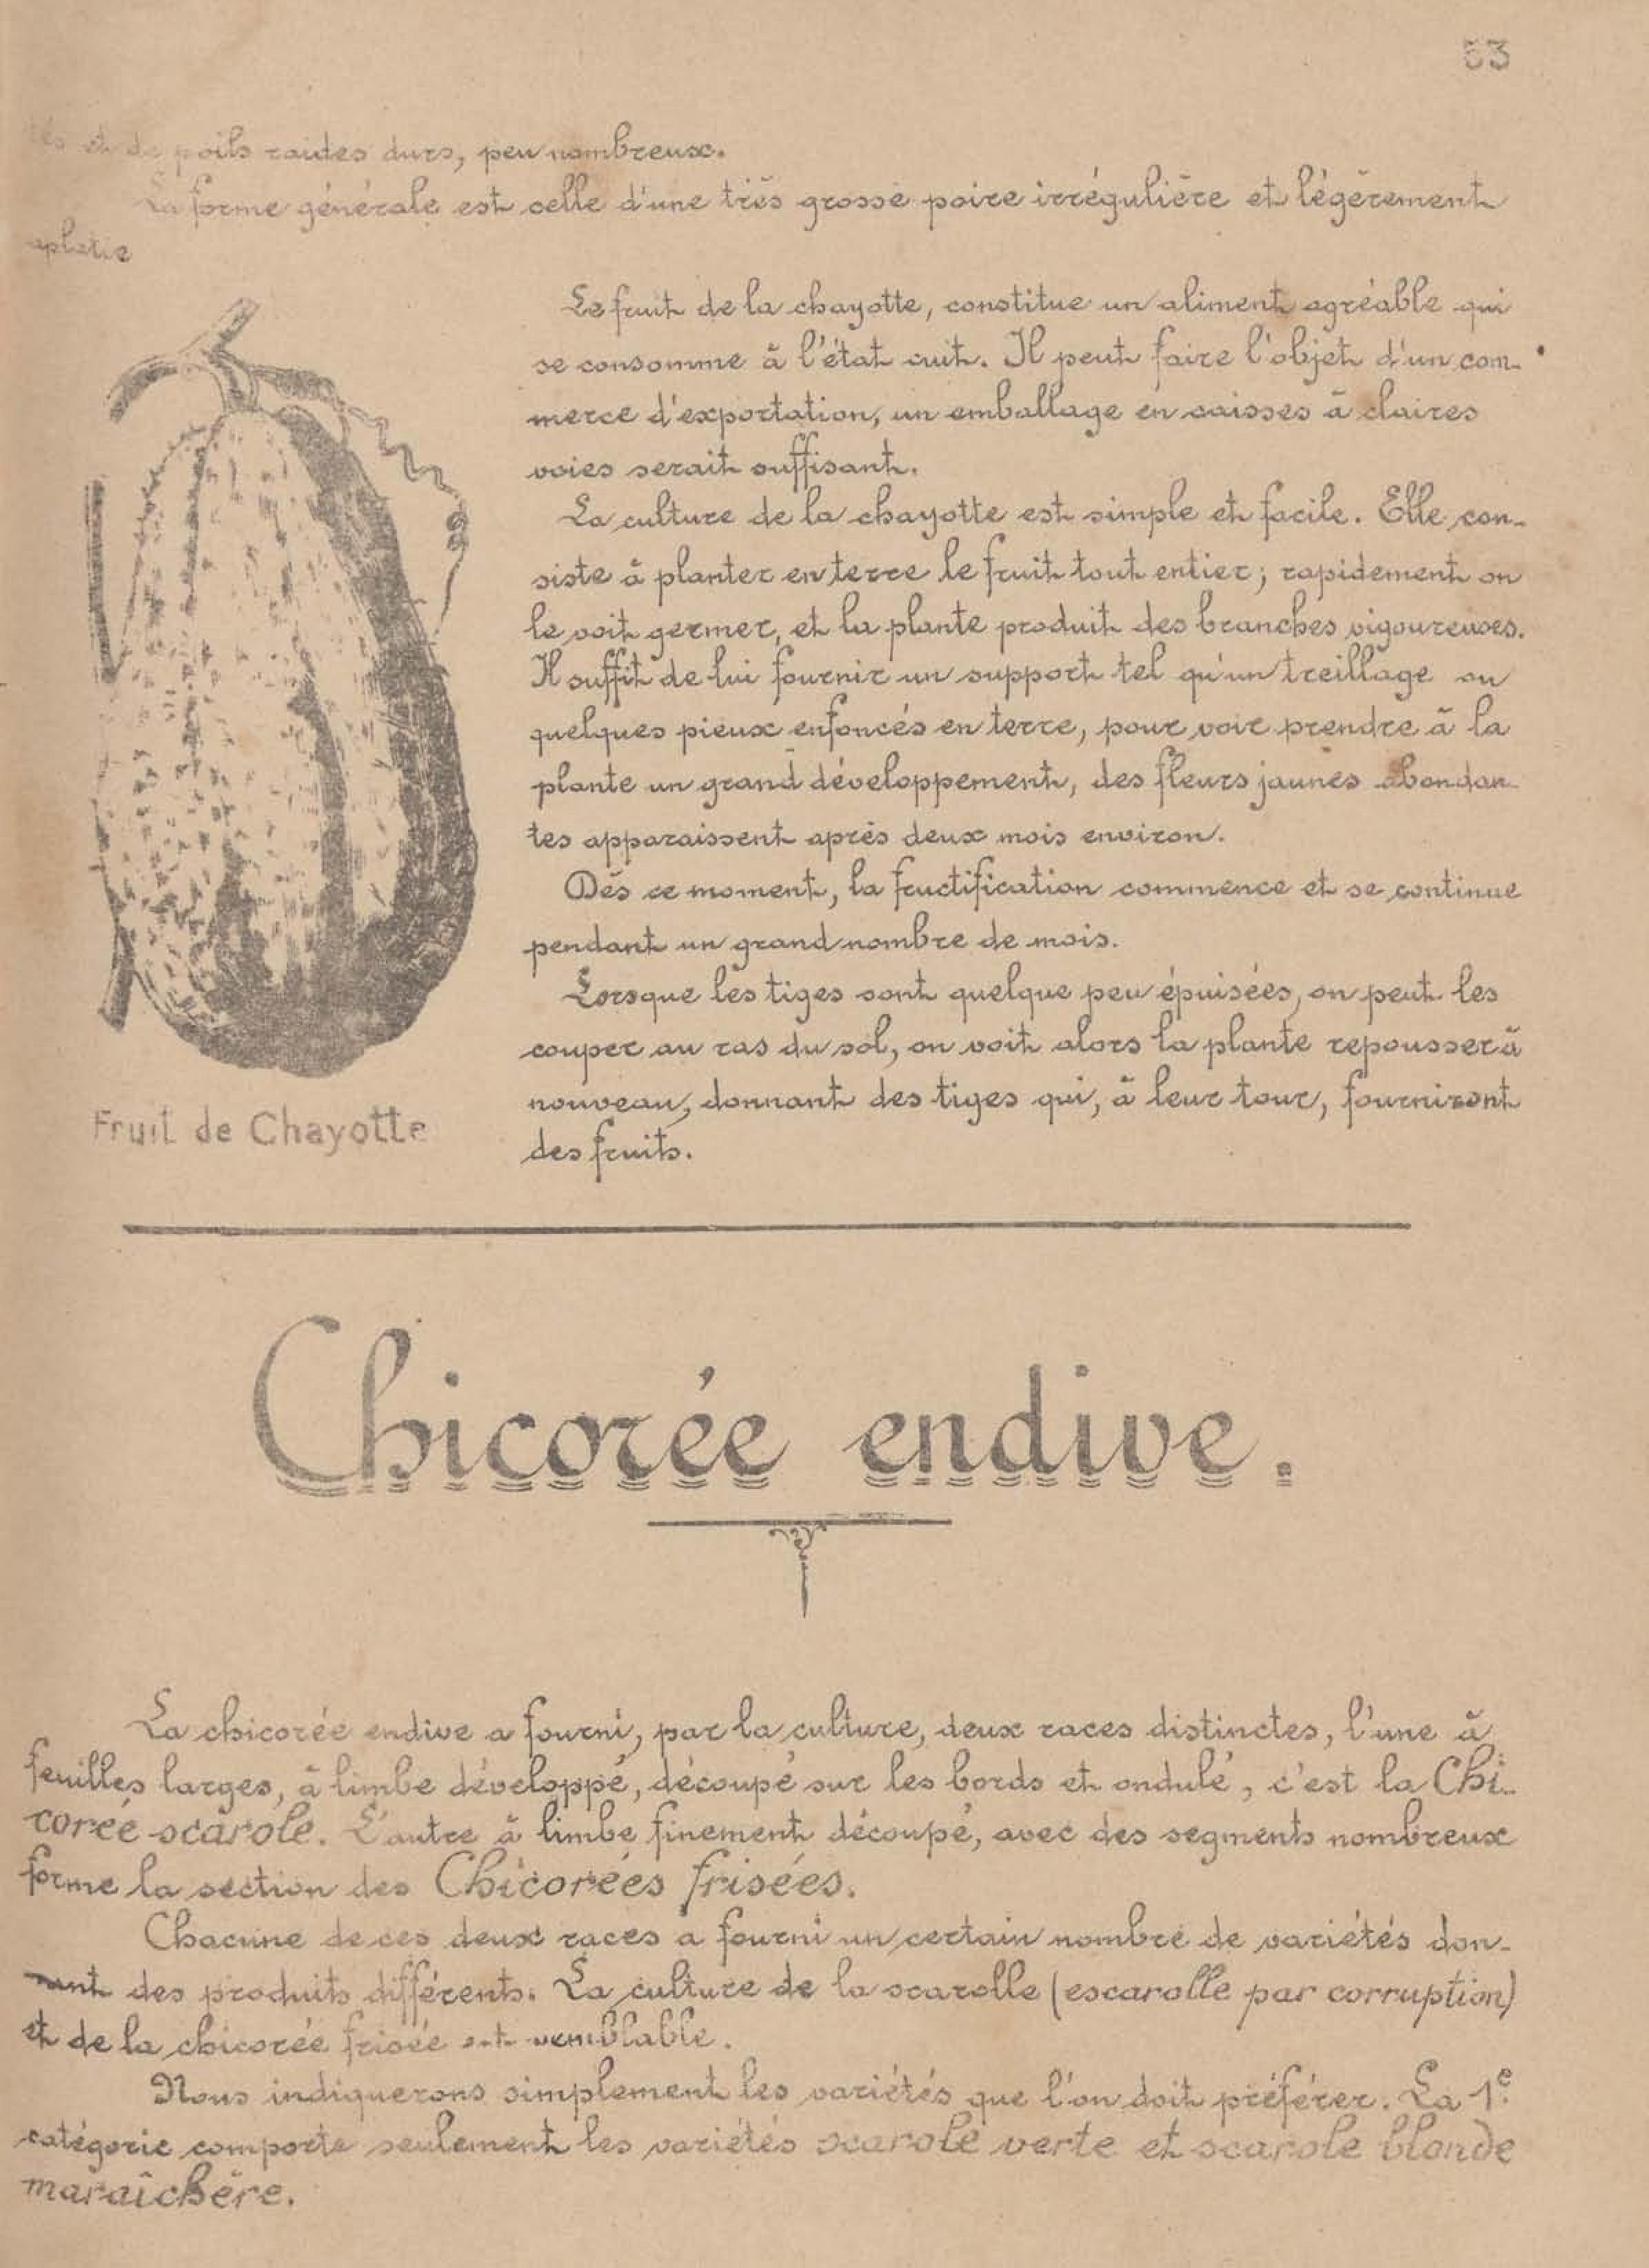 53
tés et de poils raides durs, peu nombreux.
La forme générale est celle d'une très grosse poire irrégulière et légèrement
aplatie
Le fruit de la chayotte, constitue un aliment agréable qui
se consomme à l'état cuit. Il peut faire l'objet d'un com-
merce d'exportation, un emballage en caisses à claires
voies serait suffisant.
La culture de la chayotte est simple et facile. Elle con-
siste à planter en terre le fruit tout entier; rapidement on
le voit germer, et la plante produit des branches vigoureuses.
Il suffit de lui fournir un support tel qu'un treillage ou
quelques pieux enfoncés en terre, pour voir prendre à la
plante un grand développement, des fleurs jaunes abondan-
tes apparaissent après deux mois environ.
Dès ce moment, la fructification commence et se continue
pendant un grand nombre de mois.
Lorsque les tiges sont quelque peu épuisées, on peut les
couper au ras du sol, on voit alors la plante repousser à
nouveau, donnant des tiges qui, à leur tour, fourniront
des fruits.
Fruit de Chayotte
Chicorée endive.
La chicorée endive a fourni, par la culture, deux races distinctes, l'une à
feuilles larges, à limbe développé, découpé sur les bords et ondulé, c'est la Chi-
corée scarole. L'autre à limbe finement découpé, avec des segments nombreux
forme la section des Chicorées frisées.
Chacune de ces deux races a fourni un certain nombre de variétés don-
nant des produits différents. La culture de la scarolle (escarolle par corruption)
et de la chicorée frisée est semblable.
Nous indiquerons simplement les variétés que l'on doit préférer. La 1e
catégorie comporte seulement les variétés scarole verte et scarole blonde
maraîchère.